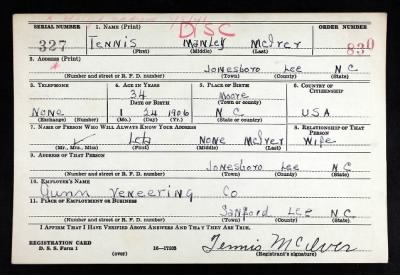 DISC
SERIAL NUMBER 1. NAME (Print) ORDER NUMBER
327 Tennis Manley McIver 830
(First) (Middle) (Last)
2. ADDRESS (Print)
Jonesboro Lee N C
(Number and street or R. F. D. number) (Town) (County) (State)
3. TELEPHONE 4. AGE IN YEARS 5. PLACE OF BIRTH 6. COUNTRY OF CITIZENSHIP
34 Moore
DATE OF BIRTH (Town or county)
None 1 24 1906 N C U.S.A
(Exchange) (Number) (Mo.) (Day) (Yr.) (State or country)
7. NAME OF PERSON WHO WILL ALWAYS KNOW YOUR ADDRESS 8. RELATIONSHIP OF THAT PERSON
None McIver Wife
(Mr., Mrs., Miss) (First) (Middle) (Last)
9. ADDRESS OF THAT PERSON
Jonesboro Lee N C
(Number and street or R. F. D. number) (Town) (County) (State)
10. EMPLOYER'S NAME
Gunn Veneering Co
11. PLACE OF EMPLOYMENT OR BUSINESS
Sanford Lee N C
(Number and street or R. F. D. number) (Town) (County) (State)
I AFFIRM THAT I HAVE VERIFIED ABOVE ANSWERS AND THAT THEY ARE TRUE.
REGISTRATION CARD
D. S. S. Form 1 16-17105 Tennis McIver
(over) (Registrant's signature)